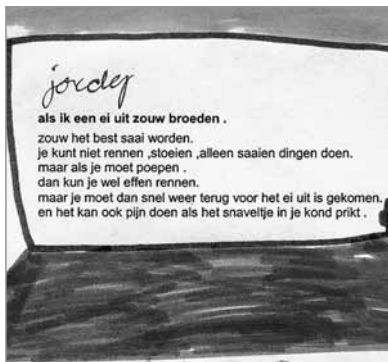 jordy
als ik een ei uit zouw broeden .
zouw het best saai worden.
je kunt niet rennen ,stoeien ,alleen saaien dingen doen.
maar als je moet poepen .
dan kun je wel effen rennen.
maar je moet dan snel weer terug voor het ei uit is gekomen.
en het kan ook pijn doen als het snaveltje in je kond prikt .